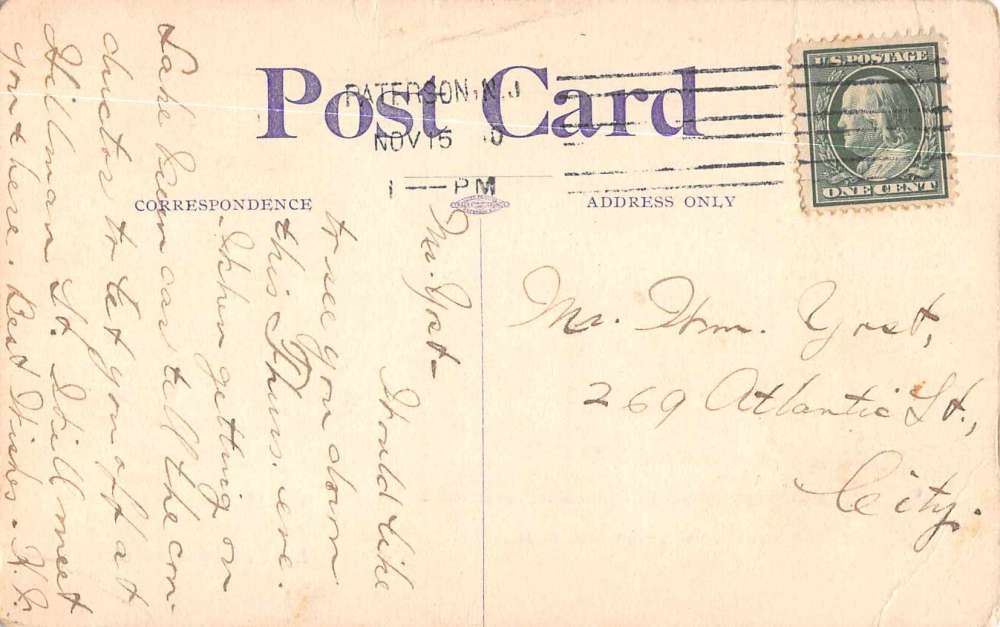 Post Card
PATERSON, N.J
NOV 15 0
1 — PM
U.S. POSTAGE
ONE CENT
CORRESPONDENCE
ADDRESS ONLY
Mr. Yost—
Would like
to see you down
this Thurs. eve.
When getting on
Lake View car tell the con-
ductor to let you off at
Hillman St. I will meet
you there. Best Wishes.
Mr. Wm. Yost,
269 Atlantic St.,
City.